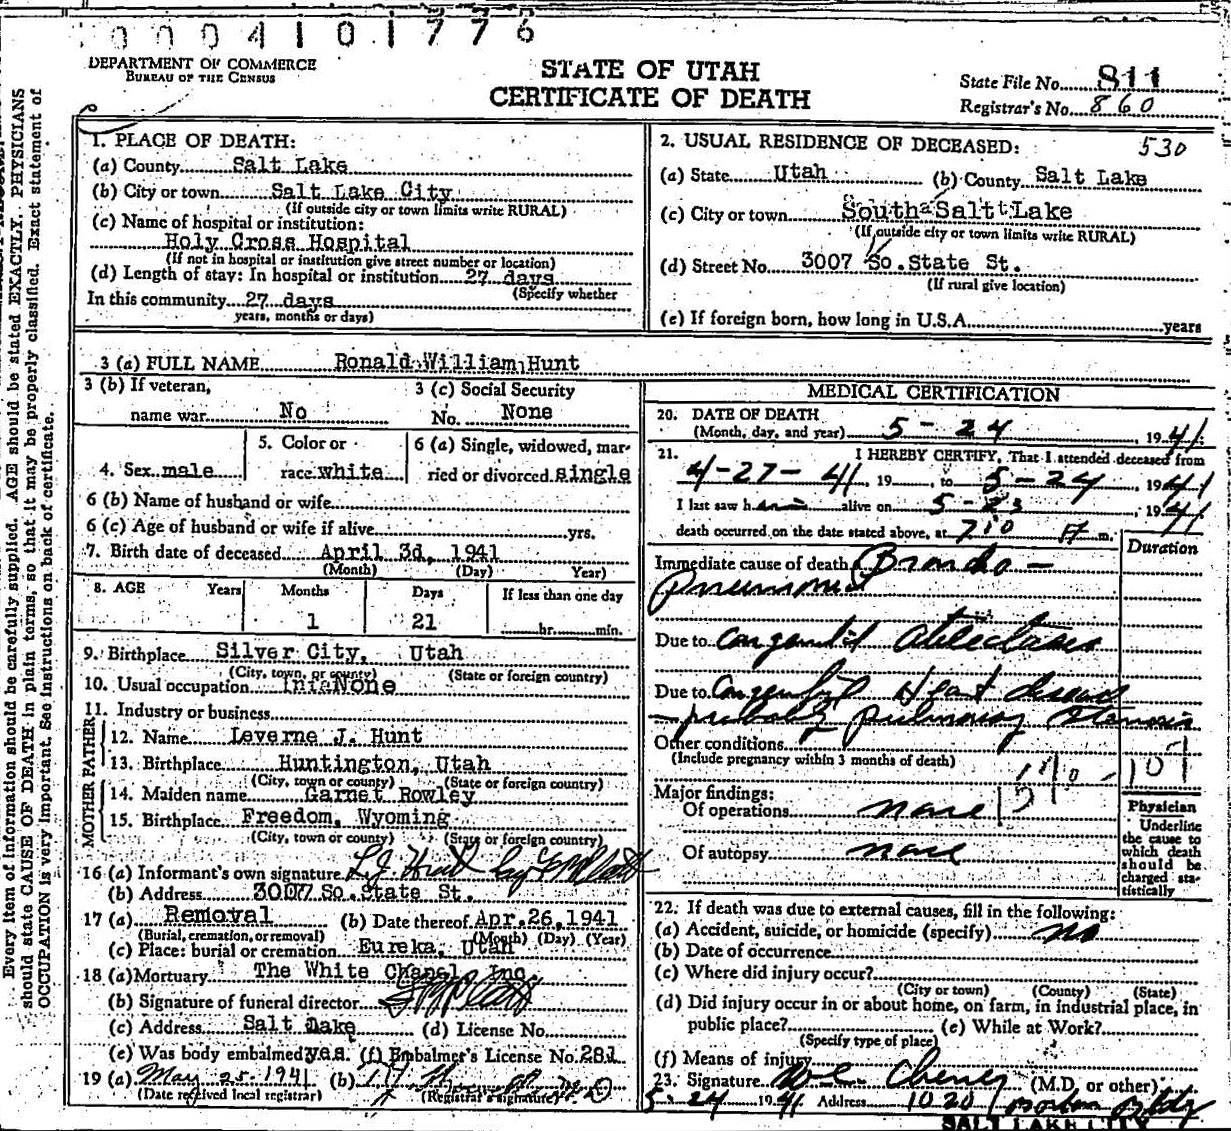 0004101776
DEPARTMENT OF COMMERCE
BUREAU OF THE CENSUS
STATE OF UTAH
CERTIFICATE OF DEATH
State File No. 811
Registrar's No. 860
530
Every item of information should be carefully supplied. AGE should be stated EXACTLY. PHYSICIANS
should state CAUSE OF DEATH in plain terms, so that it may be properly classified. Exact statement of
OCCUPATION is very important. See instructions on back of certificate.
1. PLACE OF DEATH:
(a) County Salt Lake
(b) City or town Salt Lake City
(If outside city or town limits write RURAL)
(c) Name of hospital or institution:
Holy Cross Hospital
(If not in hospital or institution give street number or location)
(d) Length of stay: In hospital or institution 27 days
(Specify whether
In this community 27 days
years, months or days)
2. USUAL RESIDENCE OF DECEASED:
(a) State Utah (b) County Salt Lake
(c) City or town South Salt Lake
(If outside city or town limits write RURAL)
(d) Street No. 3007 So. State St.
(If rural give location)
(e) If foreign born, how long in U.S.A. years
3 (a) FULL NAME Ronald William Hunt
3 (b) If veteran,
name war No
3 (c) Social Security
No. None
4. Sex male
5. Color or
race white
6 (a) Single, widowed, mar-
ried or divorced single
6 (b) Name of husband or wife
6 (c) Age of husband or wife if alive yrs.
7. Birth date of deceased April 3d, 1941
(Month) (Day) Year)
8. AGE Years Months Days If less than one day
1 21 hr. min.
9. Birthplace Silver City, Utah
(City, town, or county) (State or foreign country)
10. Usual occupation None
11. Industry or business
FATHER
12. Name Leverne J. Hunt
13. Birthplace Huntington, Utah
(City, town or county) (State or foreign country)
MOTHER
14. Maiden name Garnet Rowley
15. Birthplace Freedom, Wyoming
(City, town or county) (State or foreign country)
16 (a) Informant's own signature L.J. Hunt by
(b) Address 3007 So. State St.
17 (a) Removal (b) Date thereof Apr. 26, 1941
(Burial, cremation, or removal) (Month) (Day) (Year)
(c) Place: burial or cremation Eureka, Utah
18 (a) Mortuary The White Chapel Inc
(b) Signature of funeral director
(c) Address Salt Lake (d) License No.
(e) Was body embalmed yes (f) Embalmer's License No. 281
19 (a) May 25-1941 (b)
(Date received local registrar) (Registrar's signature)
MEDICAL CERTIFICATION
20. DATE OF DEATH
(Month, day, and year) 5-24, 1941
21. I HEREBY CERTIFY, That I attended deceased from
4-27-41, 19 , to 5-24, 1941
I last saw h alive on 5-23, 1941
death occurred on the date stated above, at 710 A m.
Duration
Immediate cause of death Broncho-
Pneumonia
Due to Congenital Atelectasis
Due to Congenital Heart disease
- probably pulmonary stenosis
Other conditions
(Include pregnancy within 3 months of death)
107
Major findings:
Of operations none
Of autopsy none
Physician
Underline
the cause to
which death
should be
charged sta-
tistically
22. If death was due to external causes, fill in the following:
(a) Accident, suicide, or homicide (specify) no
(b) Date of occurrence
(c) Where did injury occur?
(City or town) (County) (State)
(d) Did injury occur in or about home, on farm, in industrial place, in
public place? (e) While at Work?
(Specify type of place)
(f) Means of injury
23. Signature Cheney (M.D. or other)
5-24 1941 Address 1020 Boston Bldg
SALT LAKE CITY